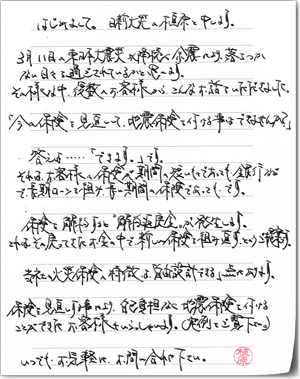 はじめまして。日新火災の植原と申します。
3月11日の東日本大震災以降続く余震により、落ちつか
ない日々を過ごされているかと思います。
その様な中、複数のお客様から、こんなお話をいただきました。
「今の保険を見直して、地震保険を付ける事はできませんか?」
答えは……「できます。」です。
それは、お客様の保険の期間が途いものであっても、銀行など
で長期ローンを組み、長い期間の保険であっても…です。
保険を解約すると"解約返戻金"が発生します。
これは、その戻ってきたお金の中で、新しい保険を組み直す、という
当社の火災保険の特徴は、自由設計できる点にあります。
保険を見直す事により、自己負担なしに地震保険を付ける
ことができたお客様もいらっしゃいます。(実例をご覧下さい)
いつでも、お気軽に、お問い合わせ下さい。
植原